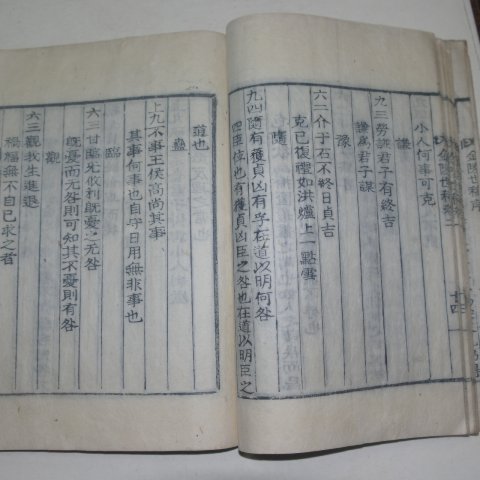 小人何事可克
謙
九三勞謙君子有終吉
謙爲君子謀
豫
六二介于石不終日貞吉
克己復禮如洪爐上一點雪
隨
九四隨有獲貞凶有孚在道以明何咎
四臣位也有獲貞凶臣之咎也在道以明臣之
道也
蠱
上九不事王侯高尚其事
其事何事也自孚日用無非事也
臨
六三甘臨无攸利旣憂之无咎
旣憂而无咎則可知其不憂則有咎
觀
六三觀我生進退
禍福無不自己求之者